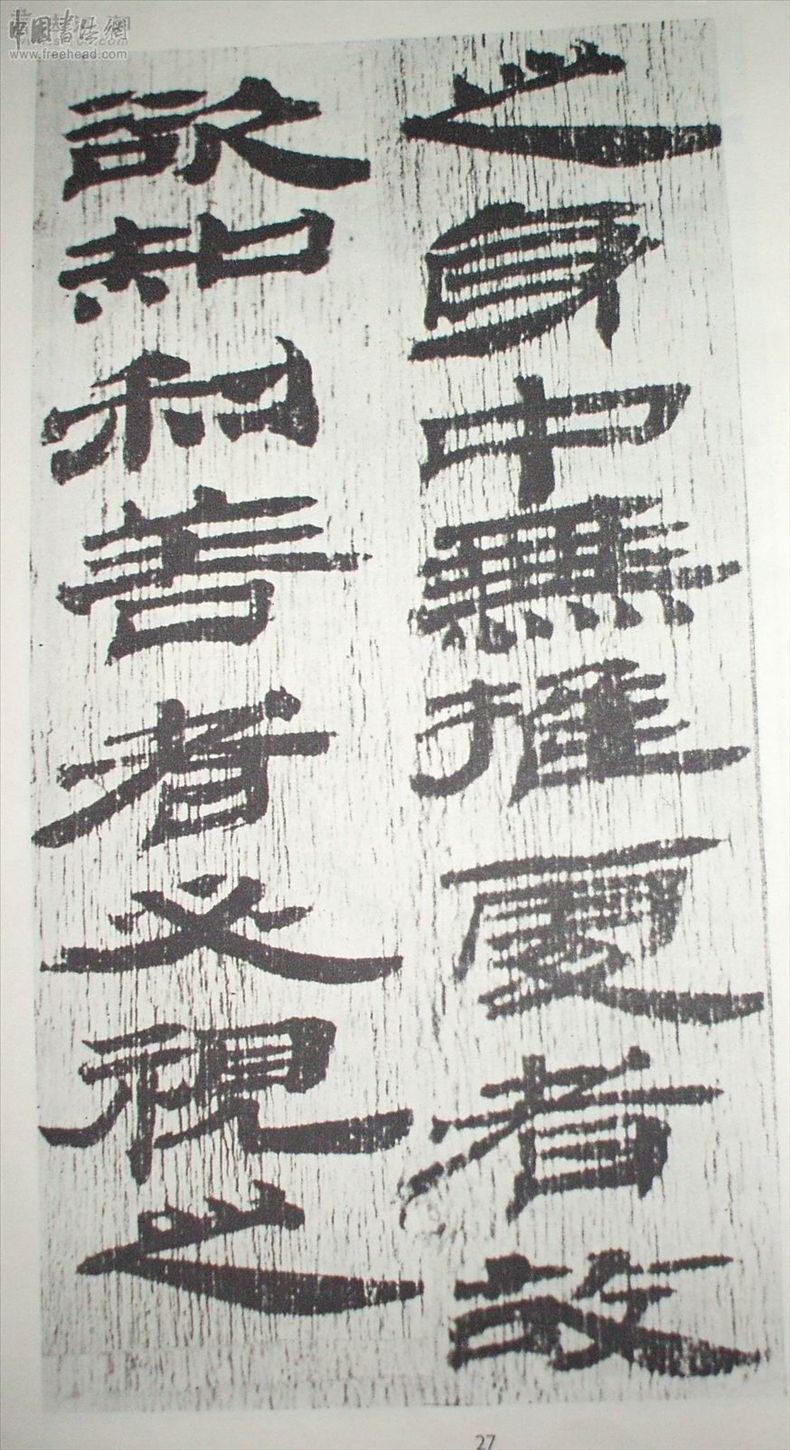 中國書法網
www.freehead.com
之身中無推處者故
欲知利善者必視之
27